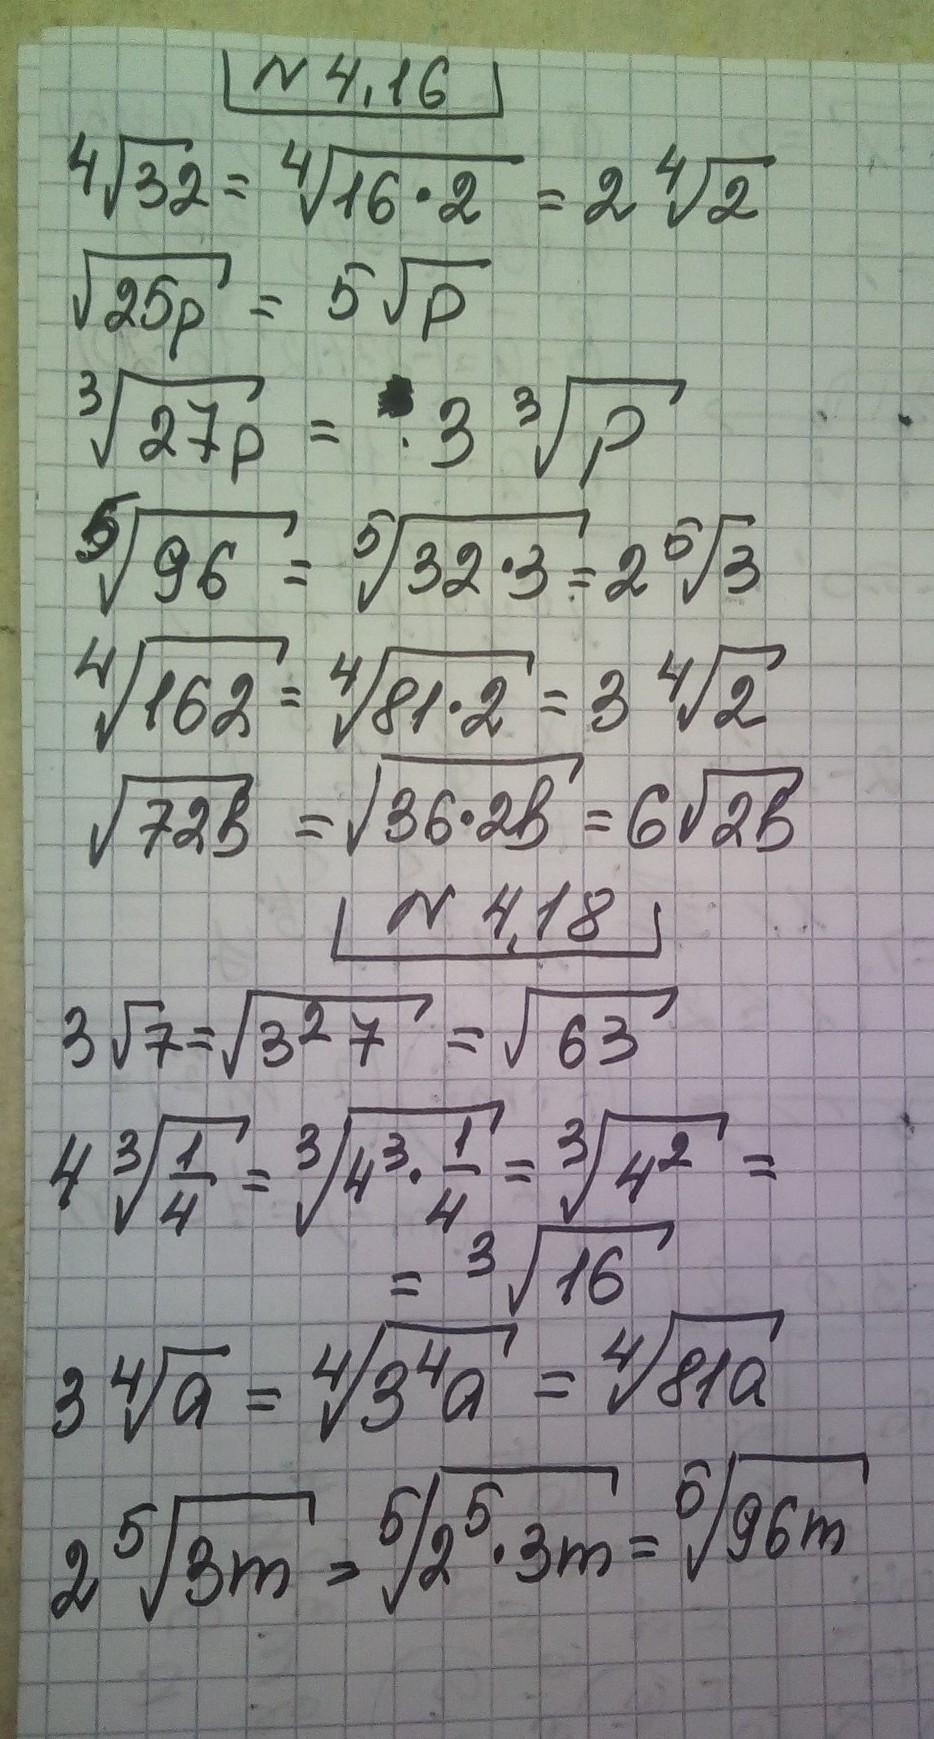 N 4,16
⁴√32 = ⁴√16·2 = 2 ⁴√2
√25p = 5√p
³√27p = 3 ³√p
⁵√96 = ⁵√32·3 = 2 ⁵√3
⁴√162 = ⁴√81·2 = 3 ⁴√2
√72b = √36·2b = 6√2b
N 4,18
3√7 = √3² 7 = √63
4 ³√1/4 = ³√4³·1/4 = ³√4² =
= ³√16
3 ⁴√a = ⁴√3⁴a = ⁴√81a
2 ⁵√3m = ⁵√2⁵·3m = ⁵√96m